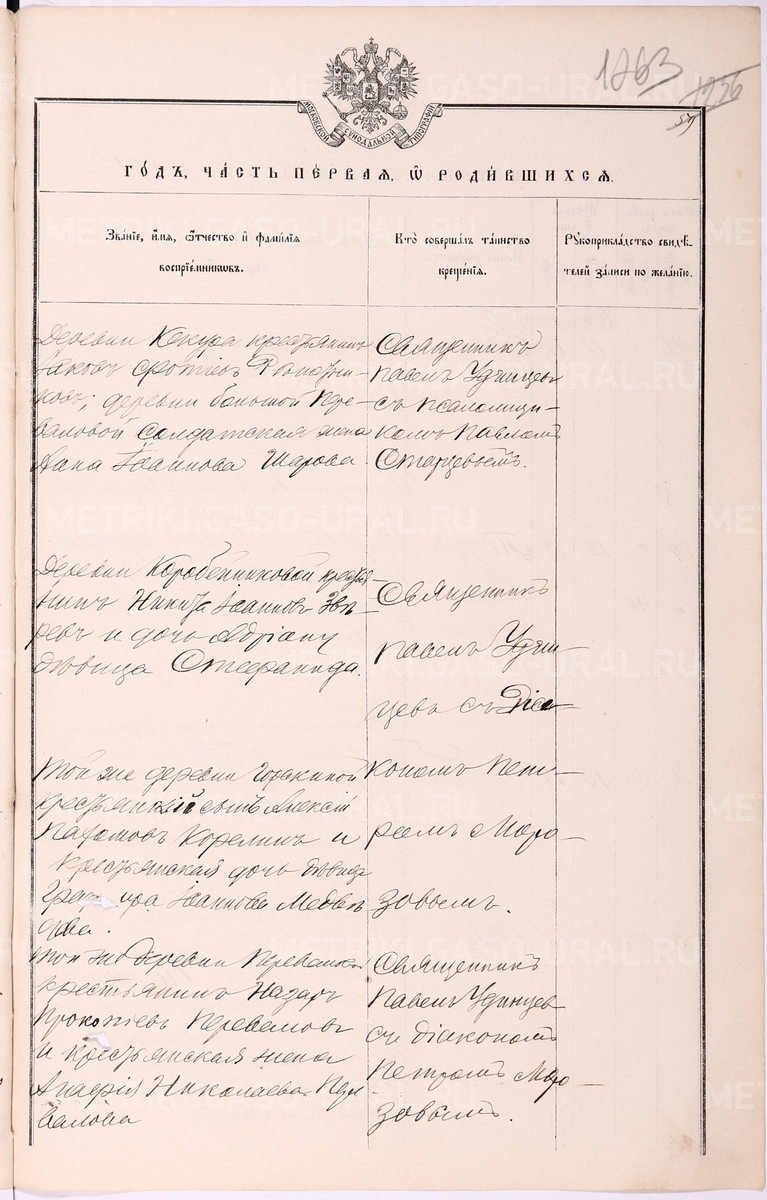 1263
1256
59
МОСКОВСКОЙ СѴНОДАЛЬНОЙ ТИПОГРАФІИ
ГОДЪ, ЧАСТЬ ПЕРВАЯ, Ѡ РОДИВШИХСЯ.
Званіе, имя, ѻтчество и фамилія
воспріемниковъ.
Кто совершалъ таинство
крещенія.
Рꙋкоприкладство свидѣ-
телей записи по желанію.
Деревни Кекура крестьянинъ
Іаковъ
ковъ; деревни большой Пере-
валовой солдатская жена
Анна Іоаннова Шарова.
Священникъ
Павелъ Удинцевъ
съ псаломщи-
комъ Павломъ
Старцевымъ.
Деревни Коробейниковой крестья-
нинъ Никита Іоанновъ Звѣ-
ревъ и дочь
дѣвица Стефанида.
Священникъ
Павелъ Удин-
цевъ съ Діа-
кономъ Пет-
ромъ Моро-
зовымъ.
Той же деревни
крестьянскій сынъ Алексій
Корелинъ и
крестьянская дочь дѣвица
Іоаннова Медвѣ-
дева.
Той же деревни Перевалов
крестьянинъ Назаръ
Прокопіевъ Переваловъ
и крестьянская жена
Агафія Николаева Пере-
валова
Священникъ
Павелъ Удинцевъ
съ діакономъ
Петромъ Моро-
зовымъ.
METRIKI.GASO-URAL.RU